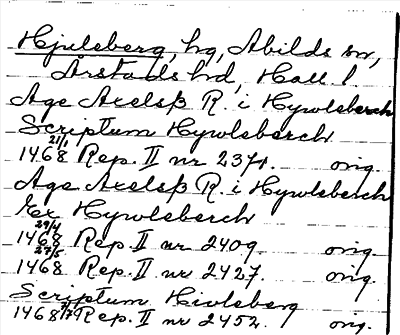 Hjuleberg, hg, Abilds sn,
Årstads hd, Hall. l.
Age Axelsß R. i Hywlsberch
Scriptum Hywlsberch
1468 21/1 Rep. II nr 2371. orig.
Age Axelsß R. i Hywlsberch
Ex Hywlsberch
1468 29/4 Rep. II nr 2409. orig.
1468 27/5 Rep. II nr 2427. orig.
Scriptum Hiulsberg
1468 Rep. II nr 2452. orig.